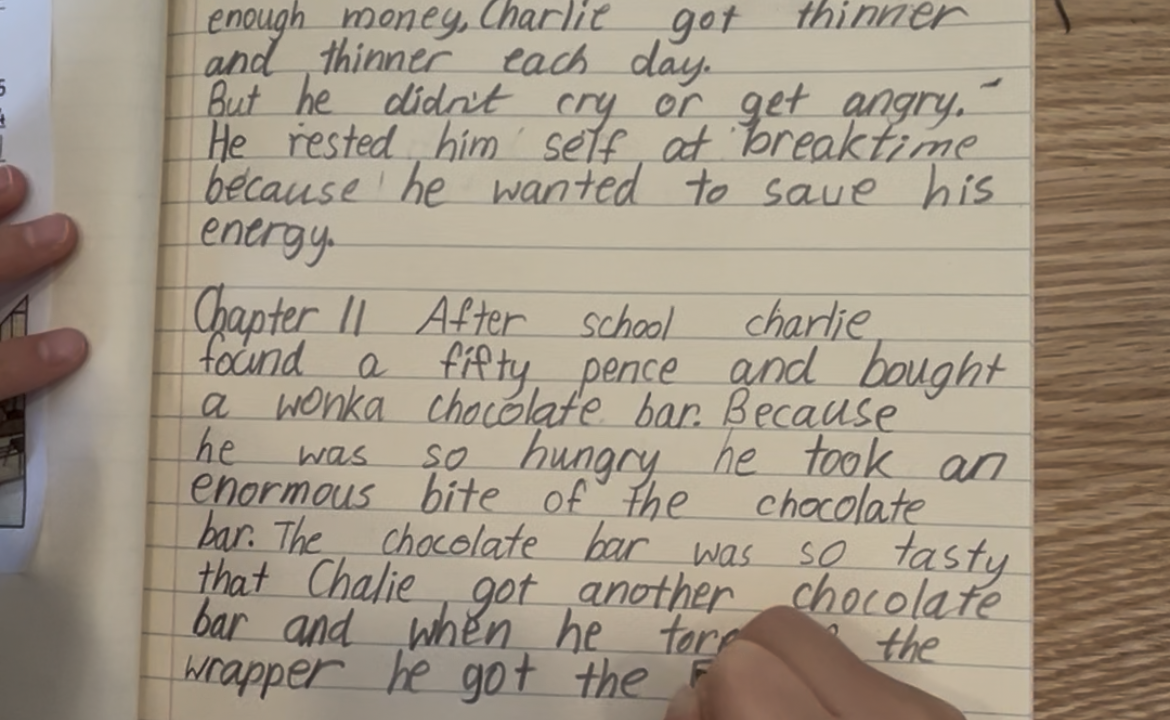 enough money, Charlie got thinner
and thinner each day.
But he didn't cry or get angry.
He rested him self at breaktime
because he wanted to save his
energy.
Chapter 11 After school charlie
found a fifty pence and bought
a wonka chocolate bar. Because
he was so hungry he took an
enormous bite of the chocolate
bar. The chocolate bar was so tasty
that Chalie got another chocolate
bar and when he the
wrapper he got the